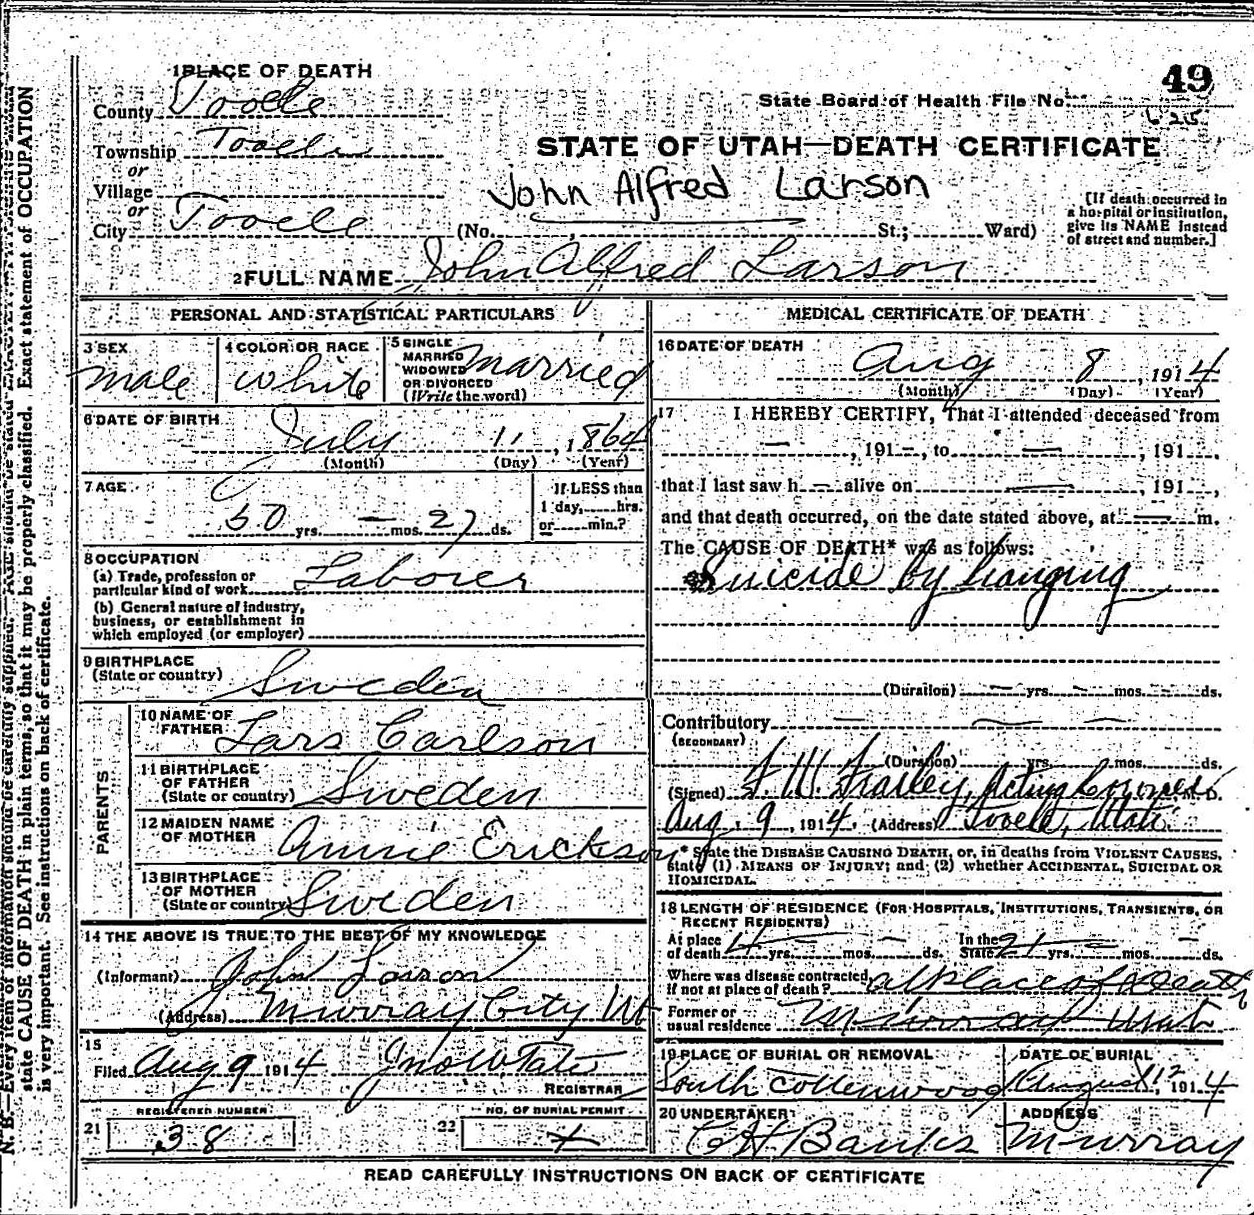 1 PLACE OF DEATH
49
County Tooele
State Board of Health File No.
625
Township Tooele
STATE OF UTAH—DEATH CERTIFICATE
or
Village
John Alfred Larson
or
City Tooele (No. , St.; Ward)
[If death occurred in
a hospital or institution,
give its NAME instead
of street and number.]
2 FULL NAME John Alfred Larson
PERSONAL AND STATISTICAL PARTICULARS
3 SEX
male
4 COLOR OR RACE
white
5 SINGLE
MARRIED
WIDOWED
OR DIVORCED
(Write the word)
married
6 DATE OF BIRTH
July 11, 1864
(Month) (Day) (Year)
7 AGE
50 yrs. — mos. 27 ds.
If LESS than
1 day, hrs.
or min.?
8 OCCUPATION
(a) Trade, profession or
particular kind of work Laborer
(b) General nature of industry,
business, or establishment in
which employed (or employer)
9 BIRTHPLACE
(State or country) Sweden
PARENTS
10 NAME OF
FATHER Lars Carlson
11 BIRTHPLACE
OF FATHER
(State or country) Sweden
12 MAIDEN NAME
OF MOTHER Annie Erickson
13 BIRTHPLACE
OF MOTHER
(State or country) Sweden
14 THE ABOVE IS TRUE TO THE BEST OF MY KNOWLEDGE
(Informant) John Larson
(Address) Murray City Ut
15
Filed Aug 9 1914 Jno W Tate
REGISTRAR
REGISTERED NUMBER
21 38
NO. OF BURIAL PERMIT
22
MEDICAL CERTIFICATE OF DEATH
16 DATE OF DEATH
Aug 8, 1914
(Month) (Day) (Year)
17 I HEREBY CERTIFY, That I attended deceased from
—, 191 —, to —, 191 ,
that I last saw h — alive on —, 191 ,
and that death occurred, on the date stated above, at — m.
The CAUSE OF DEATH* was as follows:
Suicide by hanging
(Duration) — yrs. — mos. — ds.
Contributory — — —
(SECONDARY)
(Duration) yrs. mos. ds.
(Signed) Acting Coroner M. D.
Aug. 9, 1914. (Address) Tooele, Utah.
* State the DISEASE CAUSING DEATH, or, in deaths from VIOLENT CAUSES,
state (1) MEANS OF INJURY; and (2) whether ACCIDENTAL, SUICIDAL OR
HOMICIDAL.
18 LENGTH OF RESIDENCE (FOR HOSPITALS, INSTITUTIONS, TRANSIENTS, OR
RECENT RESIDENTS)
At place
of death 4 yrs. — mos. — ds. In the
State 21 yrs. — mos. — ds.
Where was disease contracted
if not at place of death? at place of Death
Former or
usual residence Murray Utah
19 PLACE OF BURIAL OR REMOVAL
South Cottonwood
DATE OF BURIAL
August 12, 1914
20 UNDERTAKER
Banks
ADDRESS
Murray
READ CAREFULLY INSTRUCTIONS ON BACK OF CERTIFICATE
state CAUSE OF DEATH in plain terms, so that it may be properly classified. Exact statement of OCCUPATION
is very important. See instructions on back of certificate.